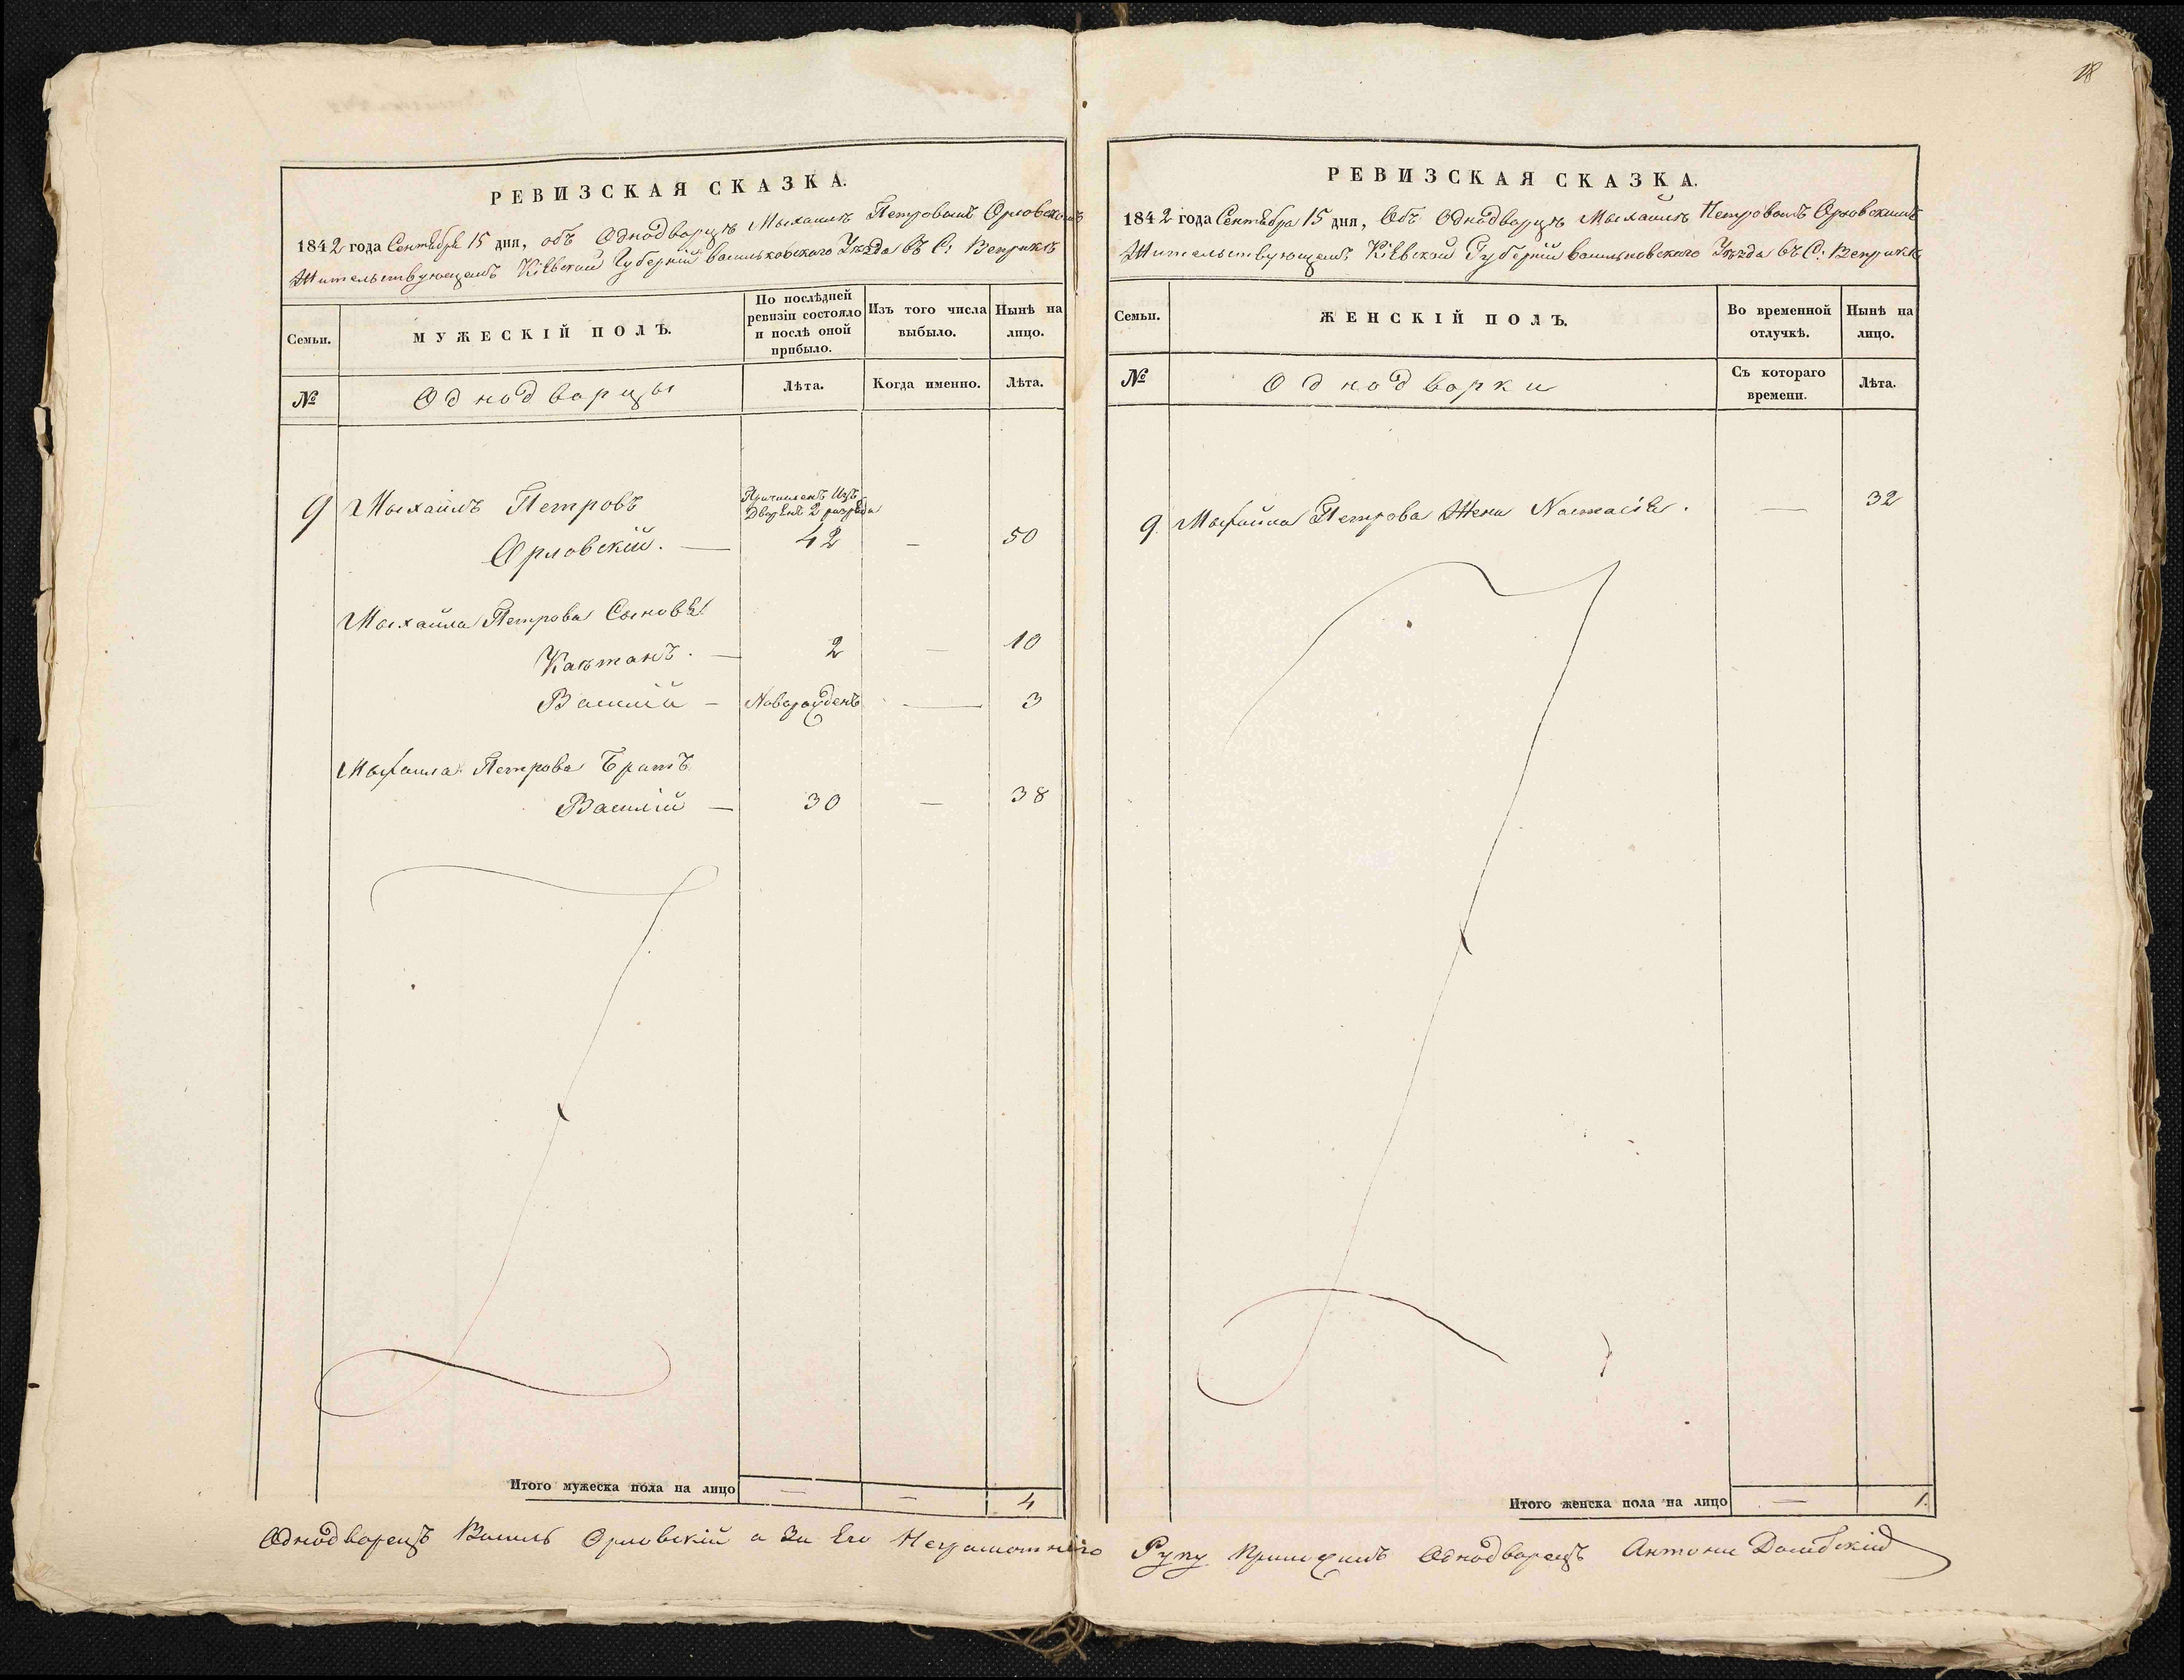 18
РЕВИЗСКАЯ СКАЗКА.
1842 года Сентября 15 дня, объ Однодворцѣ Мыхаилѣ Петровомъ Орловскомъ
Жительствующемъ Кіевской Губерніи васильковского Уѣзда въ С: Веприкѣ
Семьи.
МУЖЕСКІЙ ПОЛЪ.
По послѣдней ревизіи состояло и послѣ оной прибыло.
Изъ того числа выбыло.
Нынѣ на лицо.
№
Однодворцы
Лѣта.
Когда именно.
Лѣта.
9 Мыхаилъ Петровъ
Причисленъ Изъ
Дворянъ 2 разряда
Орловскій. — 42 — 50
Мыхаила Петрова Сыновья
Каѣтанъ. — 2 — 10
Василій — Новорожденъ — 3
Мыхаила Петрова Братъ
Василій — 30 — 38
Итого мужеска пола на лицо — — 4
Однодворецъ Василь Орловскій а За Его Неграмотного
РЕВИЗСКАЯ СКАЗКА.
1842 года Сентября 15 дня, Объ Однодворцѣ Мыхаилѣ Петровомъ Орловскимъ
Жительствующемъ Кіевской Губерніи васильковского Уѣзда въ С: Веприкѣ
Семьи.
ЖЕНСКІЙ ПОЛЪ.
Во временной отлучкѣ.
Нынѣ на лицо.
№
Однодворки
Съ котораго времени.
Лѣта.
9 Мыхайла Петрова Жена Настасія. — 32
Итого женска пола на лицо — 1.
Руку Приложилъ Однодворецъ Антони